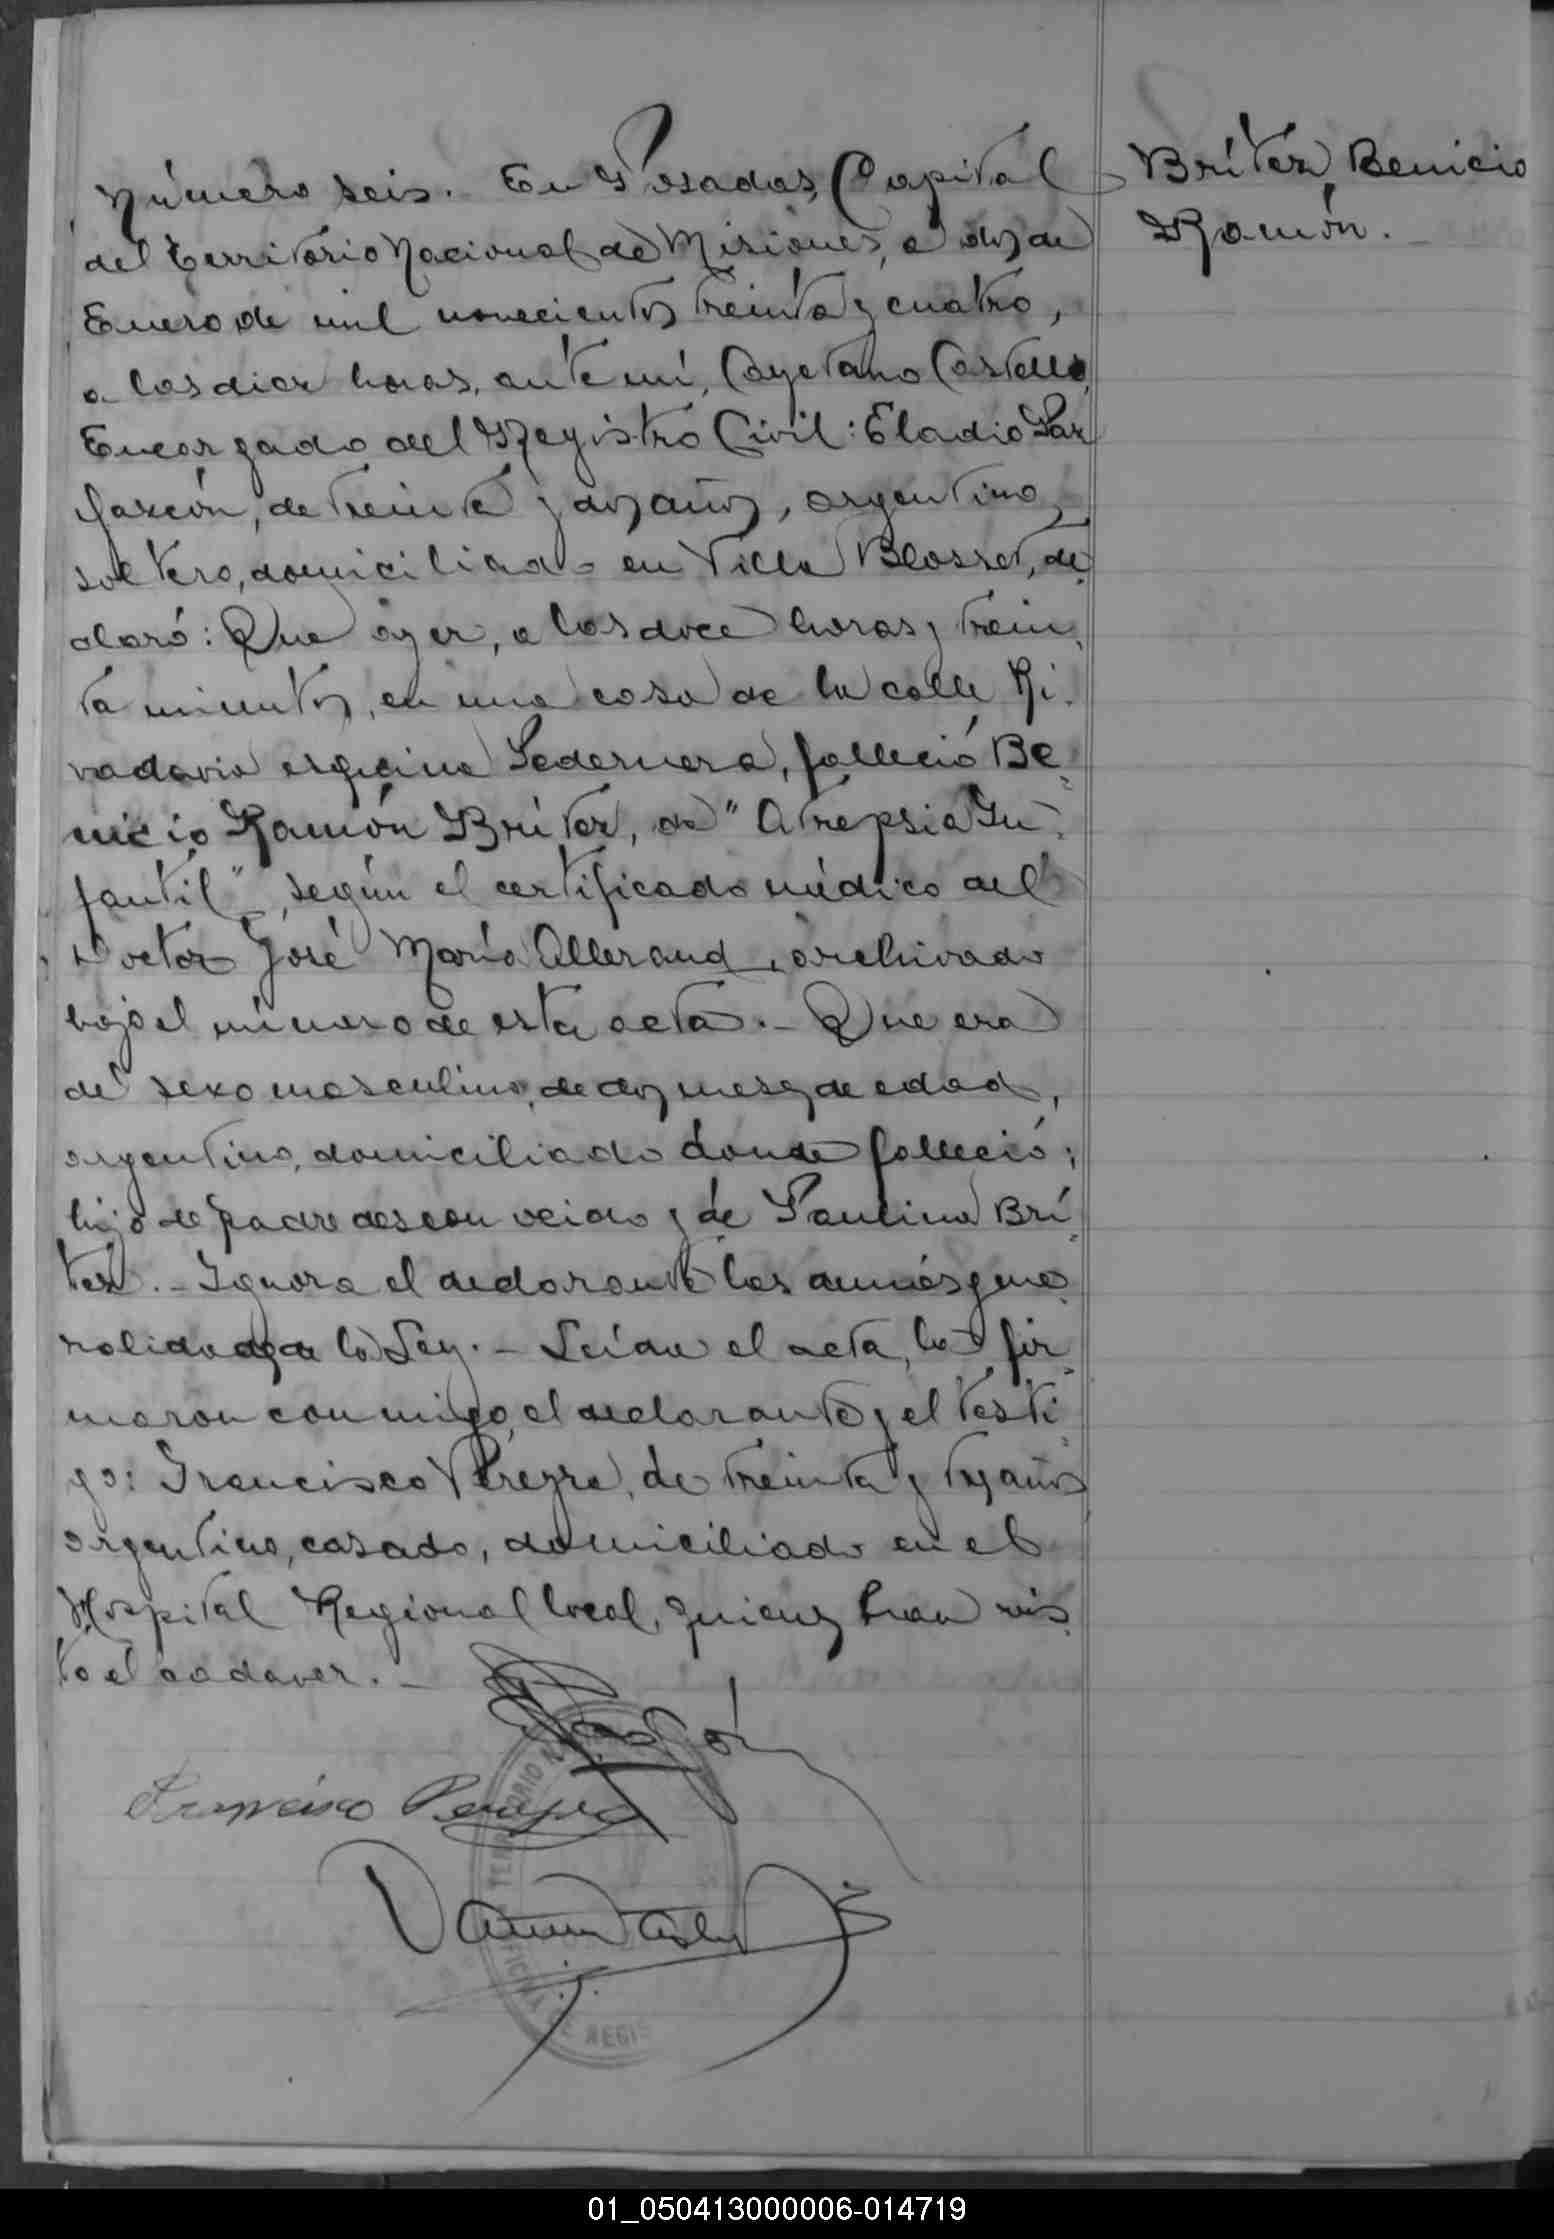 Número seis. En Posadas, Capital
del Territorio Nacional de Misiones, a dos de
Enero de mil novecientos treinta y cuatro,
a las diez horas, ante mí, Cayetano Castelli,
Encargado del Registro Civil: Eladio
de treinta y dos años, argentino,
soltero, domiciliado en Villa Blosset, de-
claró: Que ayer, a las doce horas y trein-
ta minutos, en una casa de la calle Ri-
vadavia esquina Pedernera, falleció Be-
nicio Ramón Brítez, de "Atrepsia In-
fantil", según el certificado médico del
Doctor José María Allerand, archivado
bajo el número de esta acta.- Que era
de sexo masculino, de dos meses de edad,
argentino, domiciliado donde falleció;
hijo de padre desconocido y de Paulina Brí-
tez.- Ignora el declarante las demás gene-
ralidades de la Ley.- Leída el acta, la fir-
maron conmigo, el declarante y el testi-
go: Francisco Pereyra, de treinta y tres años,
argentino, casado, domiciliado en el
Hospital Regional local, quienes han vis-
to el cadaver.-
Francisco Pereyra
Brítez, Benicio
Ramón.
TERRITORIO N
OFICINA DE REGIS
01_050413000006-014719